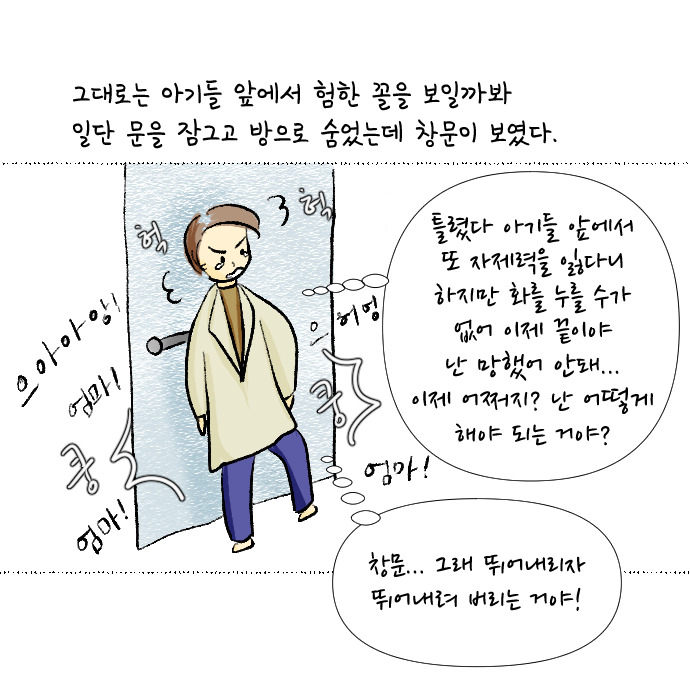 그대로는 아기들 앞에서 험한 꼴을 보일까봐
일단 문을 잠그고 방으로 숨었는데 창문이 보였다.
헉
헉
틀렸다 아기들 앞에서
또 자제력을 잃다니
하지만 화를 누를 수가
없어 이제 끝이야
난 망했어 안돼...
이제 어쩌지? 난 어떻게
해야 되는 거야?
으아아앙!
으허엉
엄마!
쿵
쿵
엄마!
엄마!
창문... 그래 뛰어내리자
뛰어내려 버리는 거야!